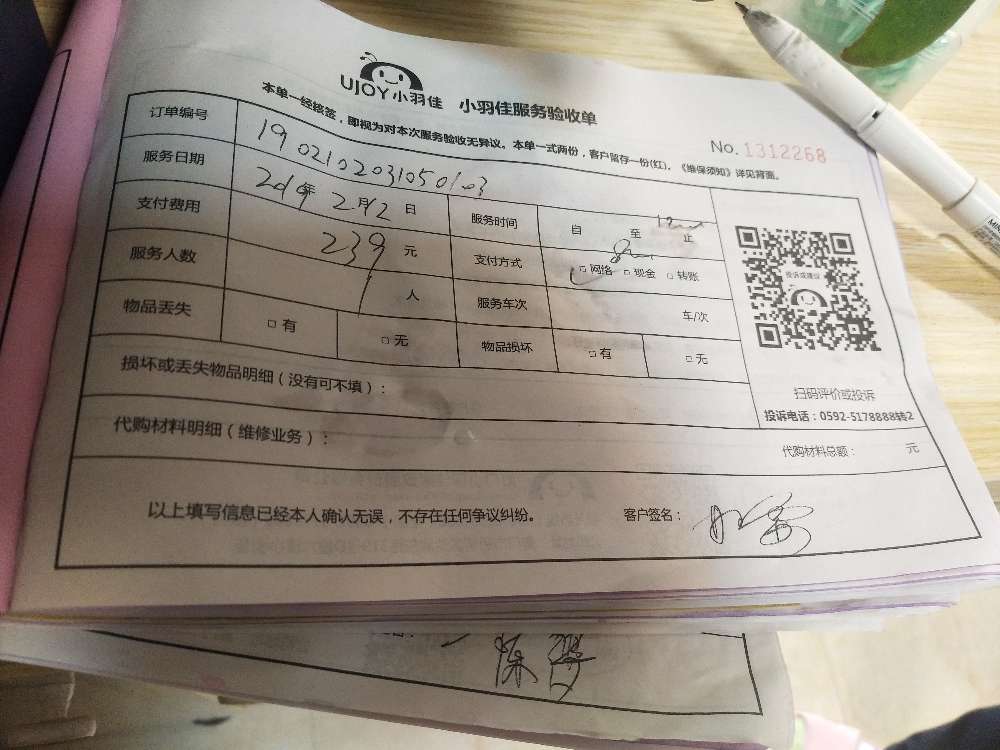 UJOY小羽佳 小羽佳服务验收单
本单一经核签，即视为对本次服务验收无异议。本单一式两份，客户留存一份(红)。《维保须知》详见背面。
No. 1312268
订单编号 1902102031050103
服务日期 2019年2月12日 服务时间 自 至 止
支付费用 239元 支付方式 □网络 □现金 □转账
服务人数 1人 服务车次 车/次
物品丢失 □有 □无 物品损坏 □有 □无
投诉或建议
扫码评价或投诉
投诉电话：0592-5178888转2
损坏或丢失物品明细（没有可不填）：
代购材料明细（维修业务）： 代购材料总额： 元
以上填写信息已经本人确认无误，不存在任何争议纠纷。 客户签名：
陈